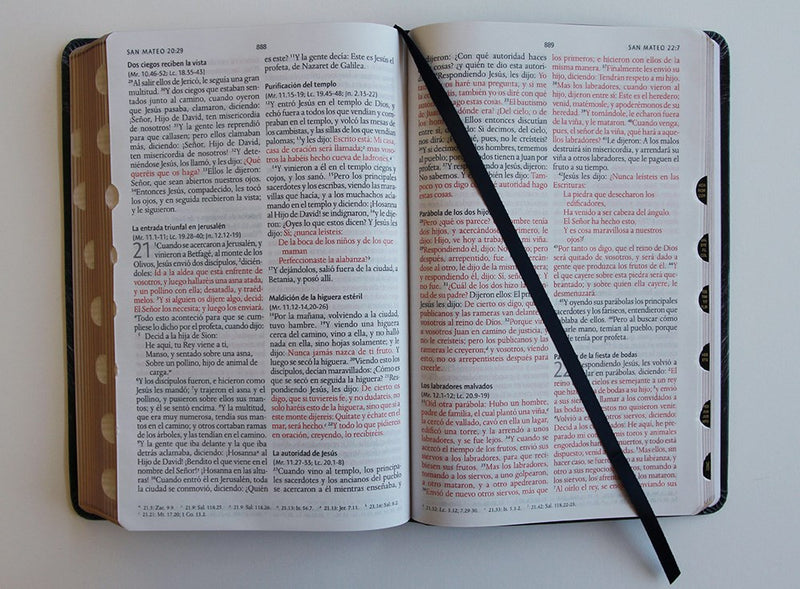 SAN MATEO 20:29
888
Dos ciegos reciben la vista
(Mr. 10.46-52; Lc. 18.35-43)
29Al salir ellos de Jericó, le seguía una gran
multitud. 30Y dos ciegos que estaban sen-
tados junto al camino, cuando oyeron
que Jesús pasaba, clamaron, diciendo:
¡Señor, Hijo de David, ten misericordia
de nosotros! 31Y la gente les reprendió
para que callasen; pero ellos clamaban
más, diciendo: ¡Señor, Hijo de David,
ten misericordia de nosotros! 32Y dete-
niéndose Jesús, los llamó, y les dijo: ¿Qué
queréis que os haga? 33Ellos le dijeron:
Señor, que sean abiertos nuestros ojos.
34Entonces Jesús, compadecido, les tocó
los ojos, y en seguida recibieron la vista;
y le siguieron.
La entrada triunfal en Jerusalén
(Mr. 11.1-11; Lc. 19.28-40; Jn. 12.12-19)
21 1Cuando se acercaron a Jerusalén, y
vinieron a Betfagé, al monte de los
Olivos, Jesús envió dos discípulos, 2dicién-
doles: Id a la aldea que está enfrente de
vosotros, y luego hallaréis una asna atada,
y un pollino con ella; desatadla, y traéd-
melos. 3Y si alguien os dijere algo, decid:
El Señor los necesita; y luego los enviará.
4Todo esto aconteció para que se cum-
pliese lo dicho por el profeta, cuando dijo:
5 Decid a la hija de Sion:
He aquí, tu Rey viene a ti,
Manso, y sentado sobre una asna,
Sobre un pollino, hijo de animal de
carga.a
6Y los discípulos fueron, e hicieron como
Jesús les mandó; 7y trajeron el asna y el
pollino, y pusieron sobre ellos sus man-
tos; y él se sentó encima. 8Y la multitud,
que era muy numerosa, tendía sus man-
tos en el camino; y otros cortaban ramas
de los árboles, y las tendían en el camino.
9Y la gente que iba delante y la que iba
detrás aclamaba, diciendo: ¡Hosanna al
Hijo de David! ¡Bendito el que viene en el
nombre del Señor! ¡Hosanna en las altu-
ras! 10Cuando entró él en Jerusalén, toda
la ciudad se conmovió, diciendo: ¿Quién
es este? 11Y la gente decía: Este es Jesús el
profeta, de Nazaret de Galilea.
Purificación del templo
(Mr. 11.15-19; Lc. 19.45-48; Jn. 2.13-22)
12Y entró Jesús en el templo de Dios, y
echó fuera a todos los que vendían y com-
praban en el templo, y volcó las mesas de
los cambistas, y las sillas de los que vendían
palomas; 13y les dijo: Escrito está: Mi casa,
casa de oración será llamada; mas voso-
tros la habéis hecho cueva de ladrones.
14Y vinieron a él en el templo ciegos y
cojos, y los sanó. 15Pero los principales
sacerdotes y los escribas, viendo las mara-
villas que hacía, y a los muchachos acla-
mando en el templo y diciendo: ¡Hosanna
al Hijo de David! se indignaron, 16y le dije-
ron: ¿Oyes lo que estos dicen? Y Jesús les
dijo: Sí; ¿nunca leísteis:
De la boca de los niños y de los que
maman
Perfeccionaste la alabanza?
17Y dejándolos, salió fuera de la ciudad, a
Betania, y posó allí.
Maldición de la higuera estéril
(Mr. 11.12-14,20-26)
18Por la mañana, volviendo a la ciudad,
tuvo hambre. 19Y viendo una higuera
cerca del camino, vino a ella, y no halló
nada en ella, sino hojas solamente; y le
dijo: Nunca jamás nazca de ti fruto. Y
luego se secó la higuera. 20Viendo esto los
discípulos, decían maravillados: ¿Cómo es
que se secó en seguida la higuera? 21Res-
pondiendo Jesús, les dijo: De cierto os
digo, que si tuviereis fe, y no dudareis, no
solo haréis esto de la higuera, sino que si a
este monte dijereis: Quítate y échate en el
mar, será hecho. 22Y todo lo que pidiereis
en oración, creyendo, lo recibiréis.
La autoridad de Jesús
(Mr. 11.27-33; Lc. 20.1-8)
23Cuando vino al templo, los principa-
les sacerdotes y los ancianos del pueblo
se acercaron a él mientras enseñaba, y
889
SAN MATEO 22:7
dijeron: ¿Con qué autoridad haces
cosas? ¿y quién te dio esta autori-
24Respondiendo Jesús, les dijo: Yo
haré una pregunta, y si me
también yo os diré con qué
hago estas cosas. 25El bautismo
de Juan, ¿dónde era? ¿Del cielo, o de
los hombres? Ellos entonces discutían
entre sí, diciendo: Si decimos, del cielo,
nos dirá: ¿Por qué, pues, no le creísteis?
26Y si decimos, de los hombres, tememos
al pueblo; porque todos tienen a Juan por
profeta. 27Y respondiendo a Jesús, dijeron:
No sabemos. Y él también les dijo: Tam-
poco yo os digo con qué autoridad hago
estas cosas.
Parábola de los dos hijos
28Pero ¿qué os parece? Un hombre tenía
dos hijos, y acercándose al primero, le
dijo: Hijo, ve hoy a trabajar en mi viña.
29Respondiendo él, dijo: No quiero; pero
después, arrepentido, fue. 30Y acercán-
dose al otro, le dijo de la misma manera;
y respondiendo él, dijo: Sí, señor, voy. Y
no fue. 31¿Cuál de los dos hizo la volun-
tad de su padre? Dijeron ellos: El primero.
Jesús les dijo: De cierto os digo, que los
publicanos y las rameras van delante de
vosotros al reino de Dios. 32Porque vino
a vosotros Juan en camino de justicia, y
no le creísteis; pero los publicanos y las
rameras le creyeron; y vosotros, viendo
esto, no os arrepentisteis después para
creerle.
Los labradores malvados
(Mr. 12.1-12; Lc. 20.9-19)
33Oíd otra parábola: Hubo un hombre,
padre de familia, el cual plantó una viña,
la cercó de vallado, cavó en ella un lagar,
edificó una torre, y la arrendó a unos
labradores, y se fue lejos. 34Y cuando se
acercó el tiempo de los frutos, envió sus
siervos a los labradores, para que reci-
biesen sus frutos. 35Mas los labradores,
tomando a los siervos, a uno golpearon,
a otro mataron, y a otro apedrearon.
36Envió de nuevo otros siervos, más que
los primeros; e hicieron con ellos de la
misma manera. 37Finalmente les envió su
hijo, diciendo: Tendrán respeto a mi hijo.
38Mas los labradores, cuando vieron al
hijo, dijeron entre sí: Este es el heredero;
venid, matémosle, y apoderémonos de su
heredad. 39Y tomándole, le echaron fuera
de la viña, y le mataron. 40Cuando venga,
pues, el señor de la viña, ¿qué hará a aque-
llos labradores? 41Le dijeron: A los malos
destruirá sin misericordia, y arrendará su
viña a otros labradores, que le paguen el
fruto a su tiempo.
42Jesús les dijo: ¿Nunca leísteis en las
Escrituras:
La piedra que desecharon los
edificadores,
Ha venido a ser cabeza del ángulo.
El Señor ha hecho esto,
Y es cosa maravillosa a nuestros
ojos?
43Por tanto os digo, que el reino de Dios
será quitado de vosotros, y será dado a
gente que produzca los frutos de él. 44Y
el que cayere sobre esta piedra será que-
brantado; y sobre quien ella cayere, le
desmenuzará.
45Y oyendo sus parábolas los principales
sacerdotes y los fariseos, entendieron que
hablaba de ellos. 46Pero al buscar cómo
echarle mano, temían al pueblo, porque
este le tenía por profeta.
Parábola de la fiesta de bodas
22 1Respondiendo Jesús, les volvió a
hablar en parábolas, diciendo: 2El
reino de los cielos es semejante a un rey
que hizo fiesta de bodas a su hijo; 3y envió
a sus siervos a llamar a los convidados a
las bodas; mas estos no quisieron venir.
4Volvió a enviar otros siervos, diciendo:
Decid a los convidados: He aquí, he pre-
parado mi comida; mis toros y animales
engordados han sido muertos, y todo está
dispuesto; venid a las bodas. 5Mas ellos, sin
hacer caso, se fueron, uno a su labranza, y
otro a sus negocios; 6y otros, tomando a
los siervos, los afrentaron y los mataron.
7Al oírlo el rey, se enojó; y enviando sus